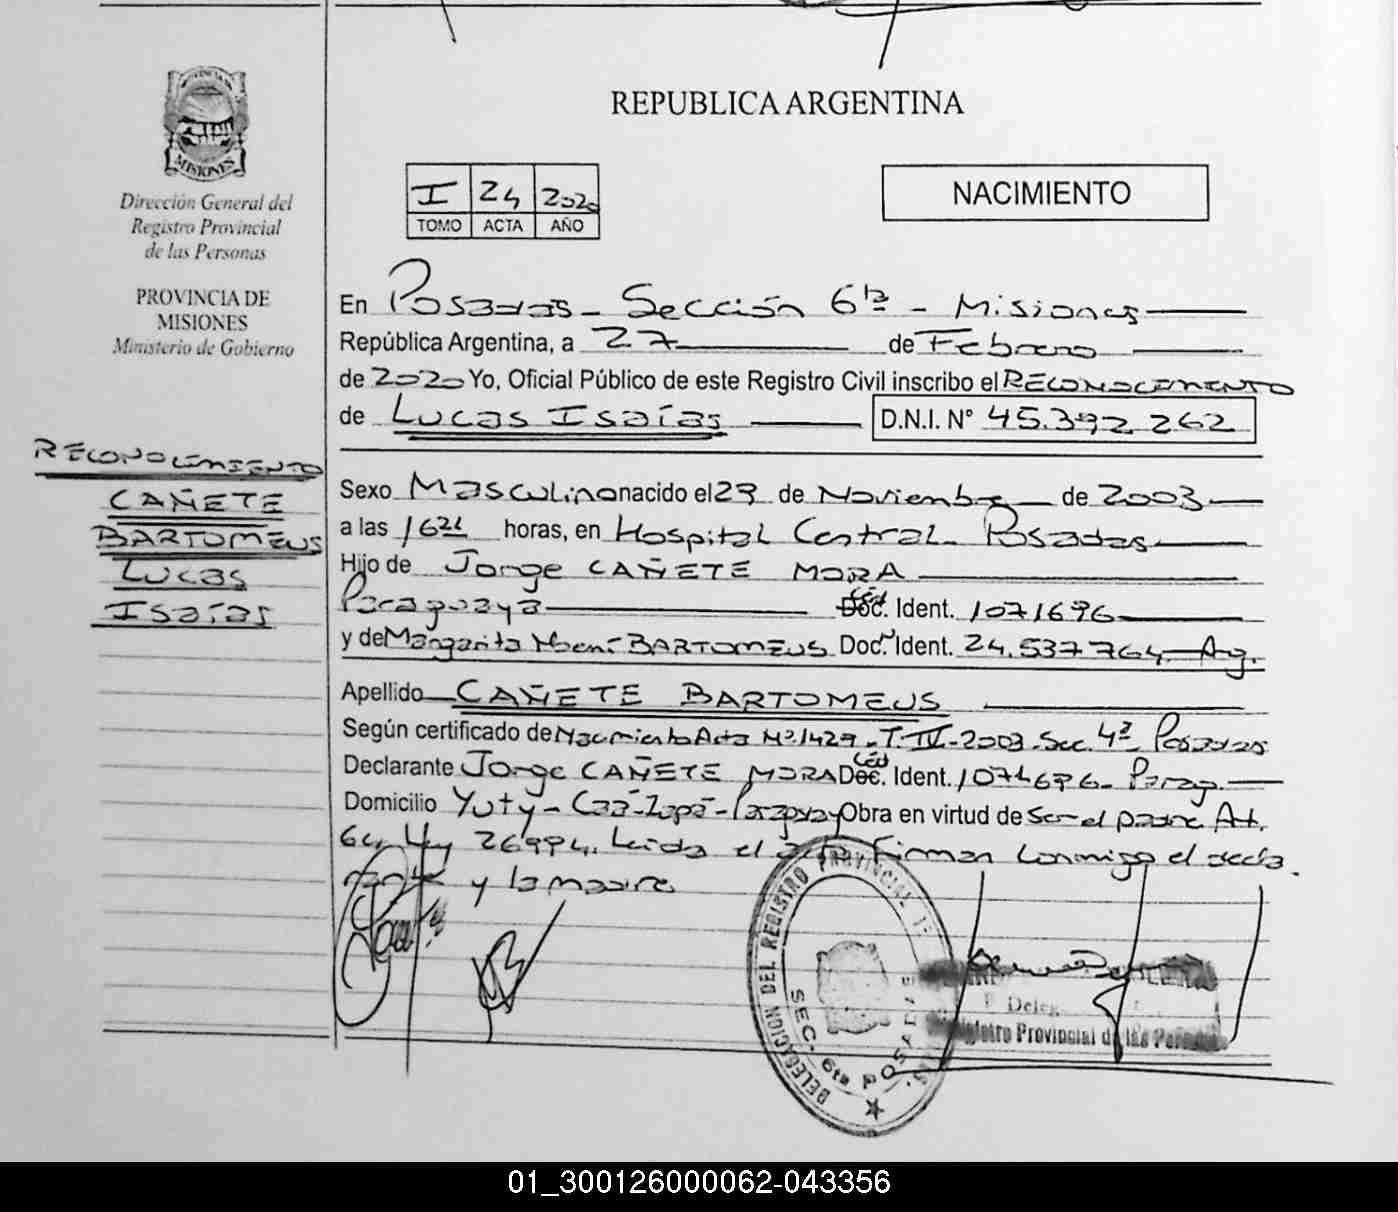 REPUBLICA ARGENTINA
I 24 2020
TOMO ACTA AÑO
NACIMIENTO
MISIONES
Dirección General del
Registro Provincial
de las Personas
PROVINCIA DE
MISIONES
Ministerio de Gobierno
RECONOCIMIENTO
CAÑETE
BARTOMEUS
Lucas
Isaías
En Posadas - Sección 6ta - Misiones
República Argentina, a 27 de Febrero
de 2020 Yo, Oficial Público de este Registro Civil inscribo el RECONOCIMIENTO
de Lucas Isaías D.N.I. N° 45.392.262
Sexo Masculino nacido el 29 de Noviembre de 2003
a las 1621 horas, en Hospital Central - Posadas
Hijo de Jorge CAÑETE MORA
Paraguaya Céd Doc. Ident. 1071696
y de Margarita Noemí BARTOMEUS Doc. Ident. 24.537.764 Arg.
Apellido CAÑETE BARTOMEUS
Según certificado de Nacimiento Acta Nº 1429 - T. IV - 2003 - Sec. 4ª Posadas
Declarante Jorge CAÑETE MORA Céd Doc. Ident. 1071696 - Parag.
Domicilio Yuty - Caá-Zapá - Paraguay Obra en virtud de Ser el padre Art.
64 Ley 26994. Leída el acta Firman conmigo el decla
rante y la madre
DELEGACION DEL REGISTRO PROVINCIAL DE
SEC. 6ta POSADAS
Registro Provincial de las Personas
01_300126000062-043356